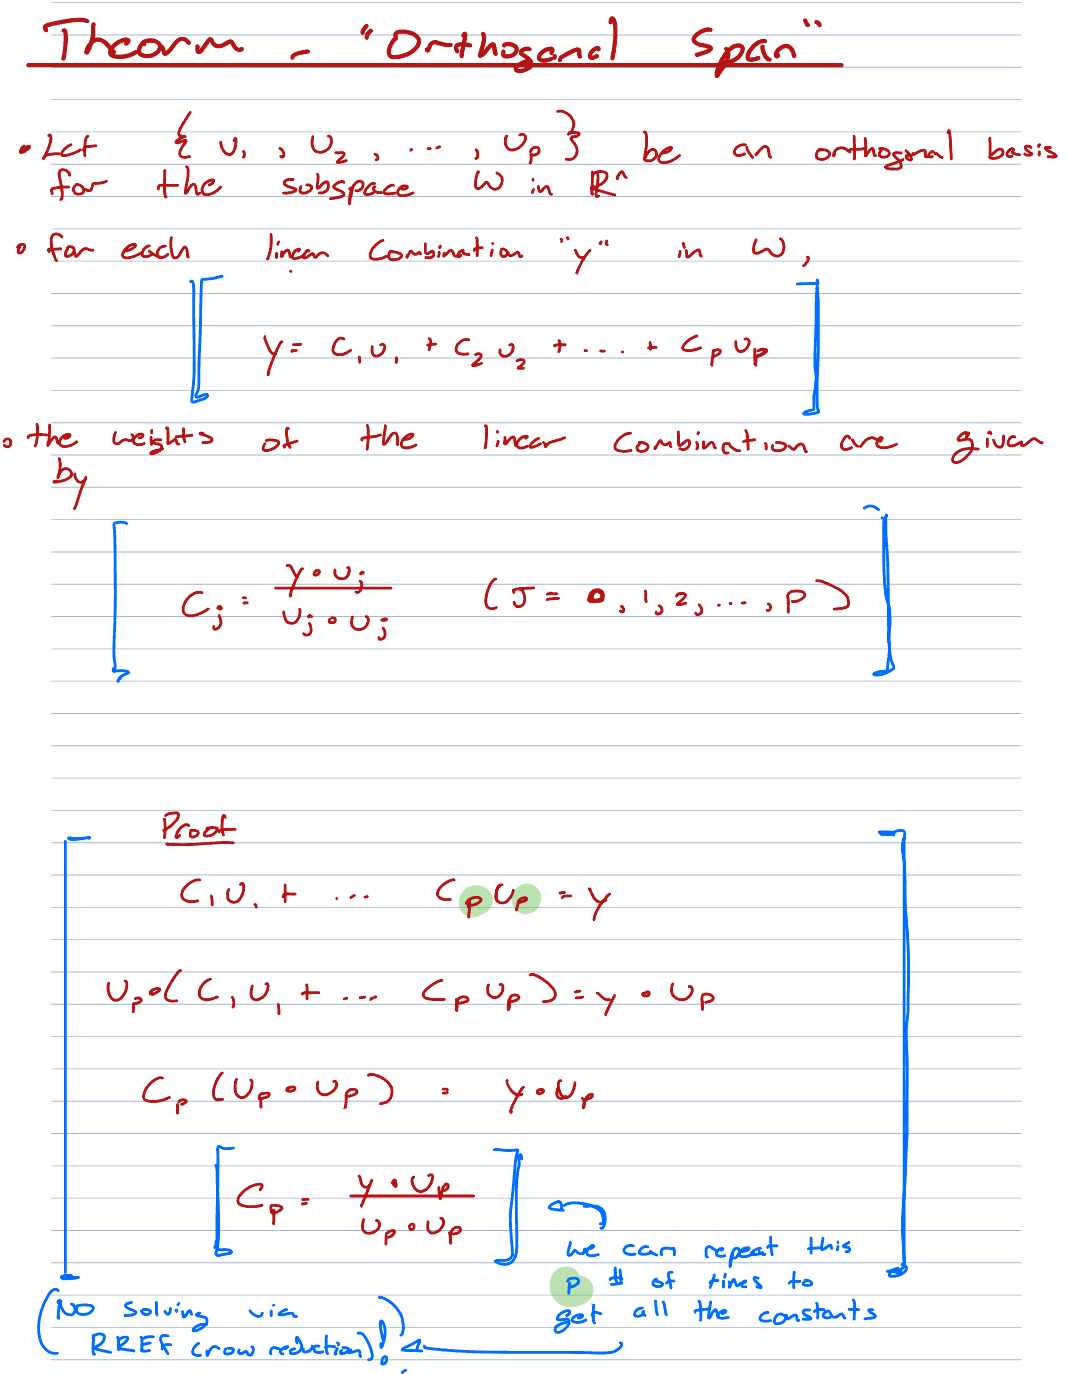 Theorm - "Orthogonal Span"
• Let { U₁ , U₂ , ... , Up } be an orthogonal basis
for the subspace W in ℝⁿ
• for each linear combination "y" in W,
y = C₁U₁ + C₂U₂ + .... + CpUp
• the weights of the linear combination are given
by
Cj = (y • Uj) / (Uj • Uj) (J = 0, 1, 2, ..., P)
Proof
C₁U₁ + ... CpUp = y
Up•(C₁U₁ + ... CpUp) = y • Up
Cp (Up • Up) = y • Up
Cp = (y • Up) / (Up • Up)
we can repeat this
P # of times to
get all the constants
(NO solving via
RREF (row reduction)!)